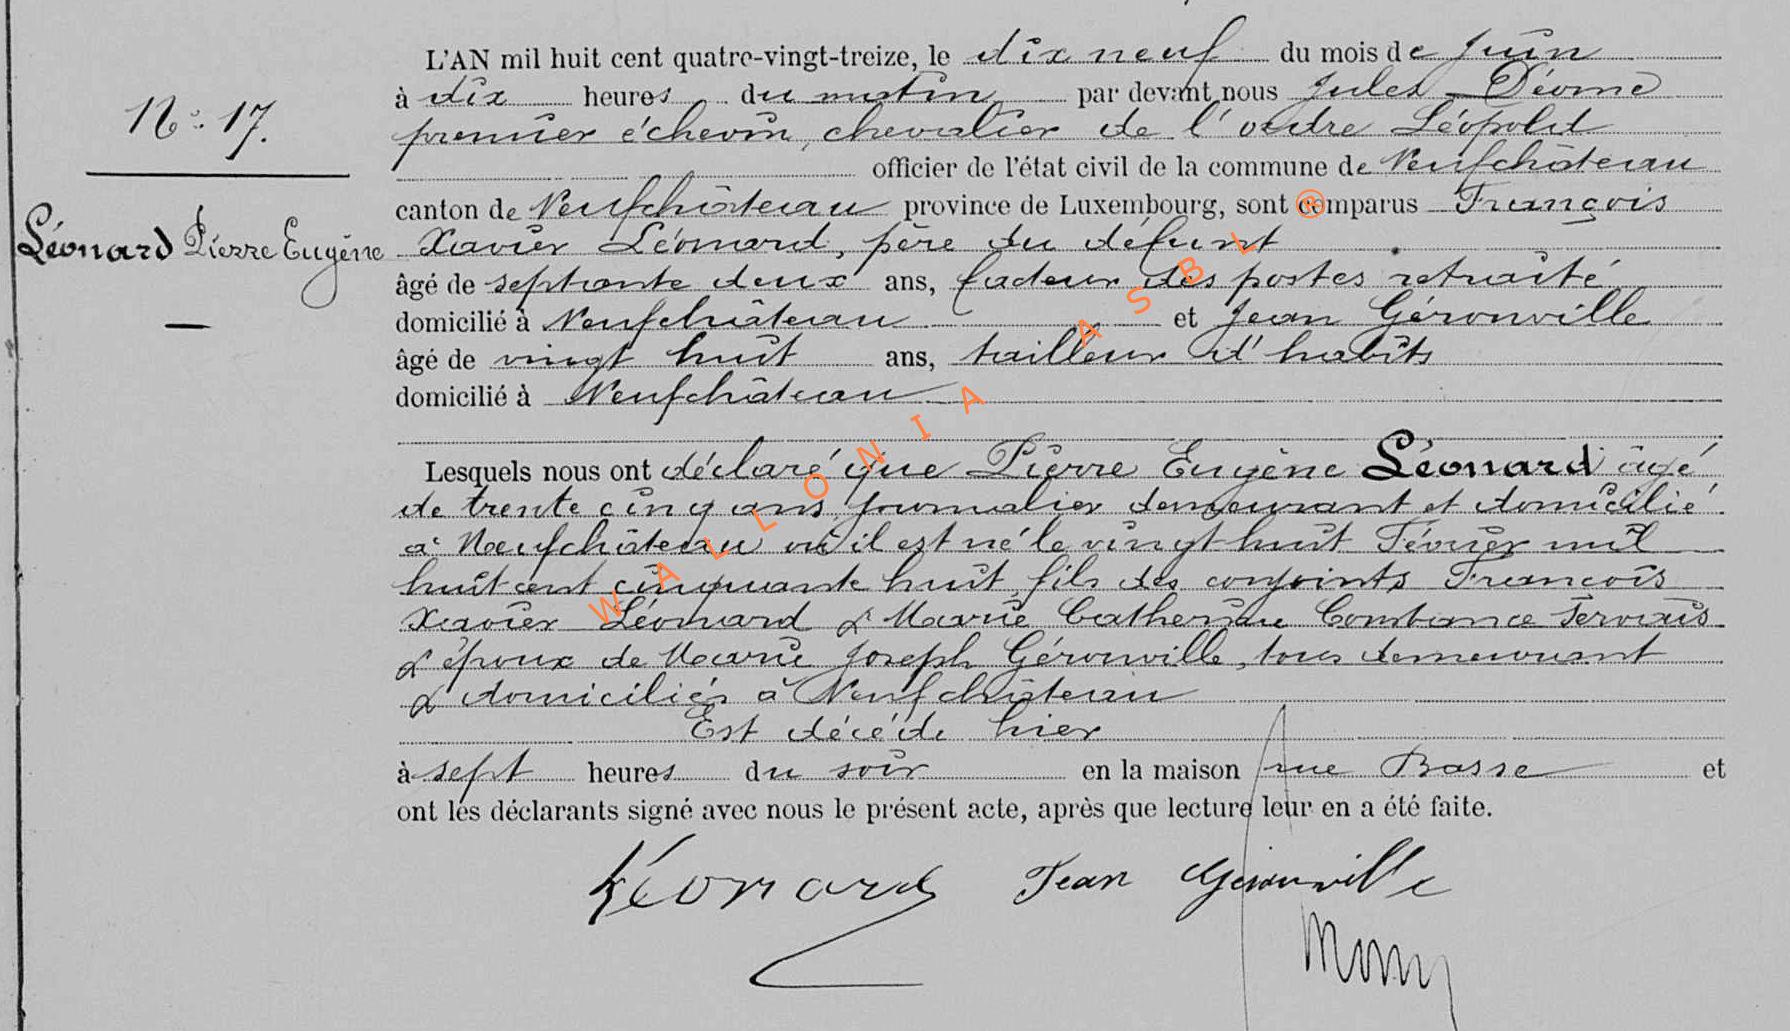 L'AN mil huit cent quatre-vingt-treize, le dix neuf du mois de Juin
à dix heures du matin par devant nous Jules Déome
N° 17.
premier échevin, chevalier de l'ordre Léopold
officier de l'état civil de la commune de Neufchâteau
canton de Neufchâteau province de Luxembourg, sont comparus François
Léonard Pierre Eugène
Xavier Léonard, père du défunt
âgé de septante deux ans, facteur des postes retraité
domicilié à Neufchâteau et Jean Géronville
âgé de vingt huit ans, tailleur d'habits
domicilié à Neufchâteau
Lesquels nous ont déclaré que Pierre Eugène Léonard âgé
de trente cinq ans, journalier demeurant et domicilié
à Neufchâteau où il est né le vingt-huit Février mil
huit cent cinquante huit, fils des conjoints François
Xavier Léonard & Marie Catherine Constance Servais
& époux de Marie Joseph Géronville, tous demeurant
& domiciliés à Neufchâteau
Est décédé hier
à sept heures du soir en la maison rue Basse et
ont les déclarants signé avec nous le présent acte, après que lecture leur en a été faite.
Léonard Jean Géronville
WALLONIA ASBL ®